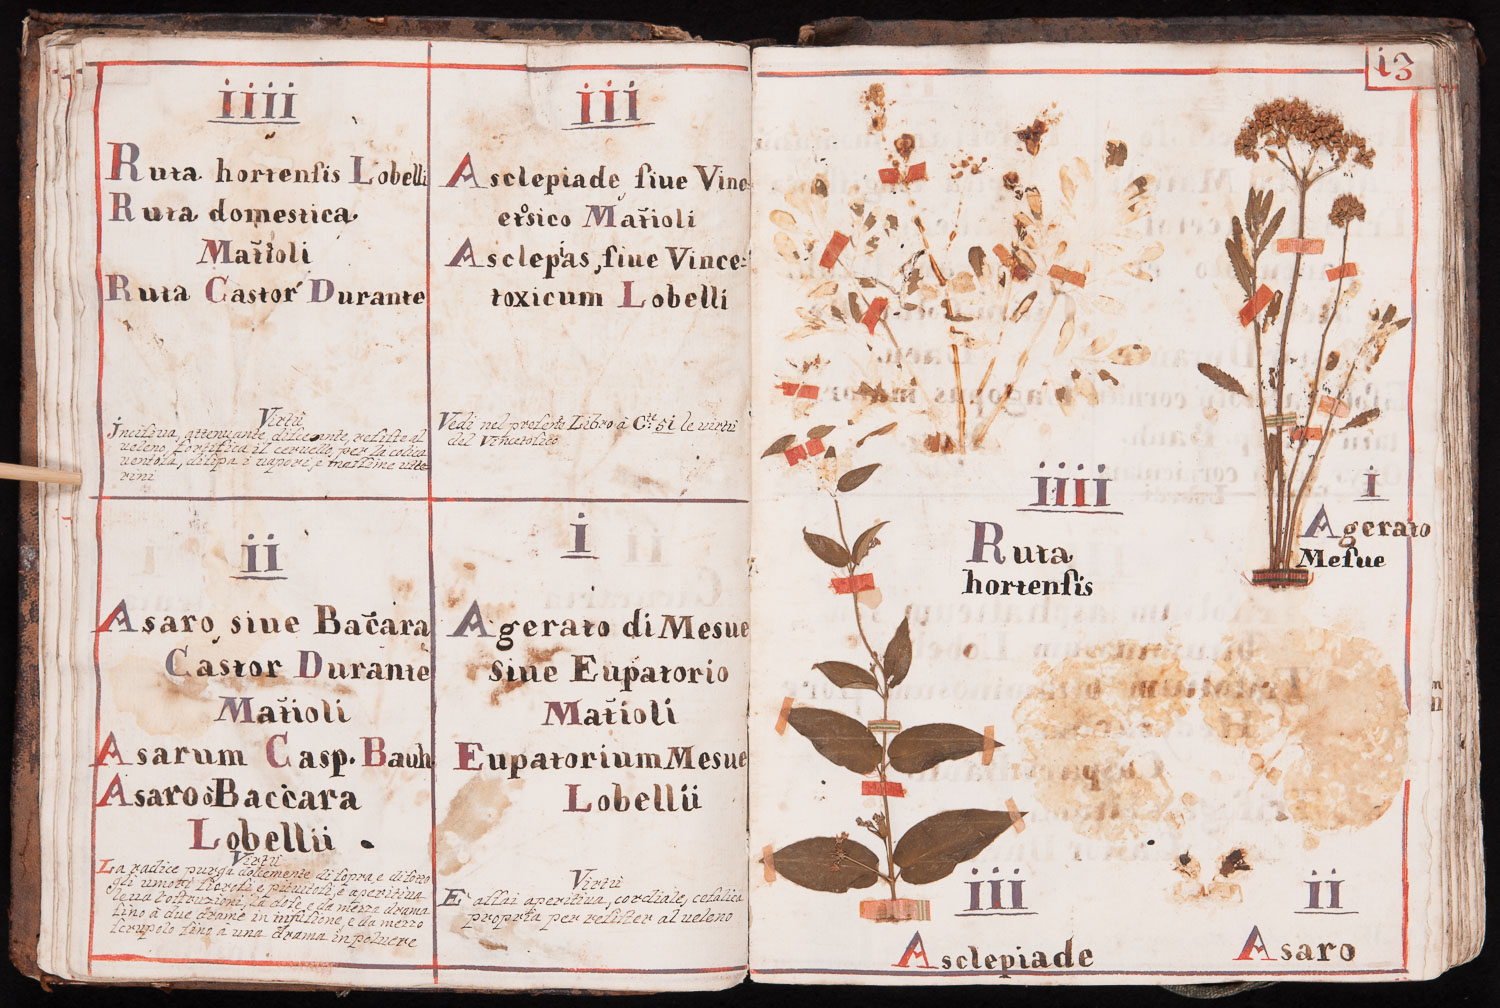 iiii
Ruta hortensis Lobelli
Ruta domestica
Matioli
Ruta Castor Durante
Virtù
Incisiva, attenuante, diliccante, resiste al
veleno, fortifica il cervello, per la colica
ventosa, disipa i vapori, e massime ute
rini
iii
Asclepiade siue Vince
etosico Matioli
Asclepias, siue Vince-
toxicum Lobelli
Vedi nel presente Libro à Cte 51 le virtù
del Vincetosico
ii
Asaro siue Bacara
Castor Durante
Matioli
Asarum Casp. Bauh
Asaro ò Baccara
Lobellii
Virtù
La radice purga dolcemente di sopra, e di sotto
gli umori sierosi, e pituitosi, è aperitiva
leva l'ostruzioni, la dose, e da mezza drama
sino à due drame in infusione, e da mezzo
scrupolo sino à una drama in poluere
i
Agerato di Mesue
siue Eupatorio
Matioli
Eupatorium Mesue
Lobellii
Virtù
E' assai aperitiva, cordiale, cefalica
propria per resister al veleno
13
iiii
Ruta
hortensis
i
Agerato
Mesue
iii
Asclepiade
ii
Asaro